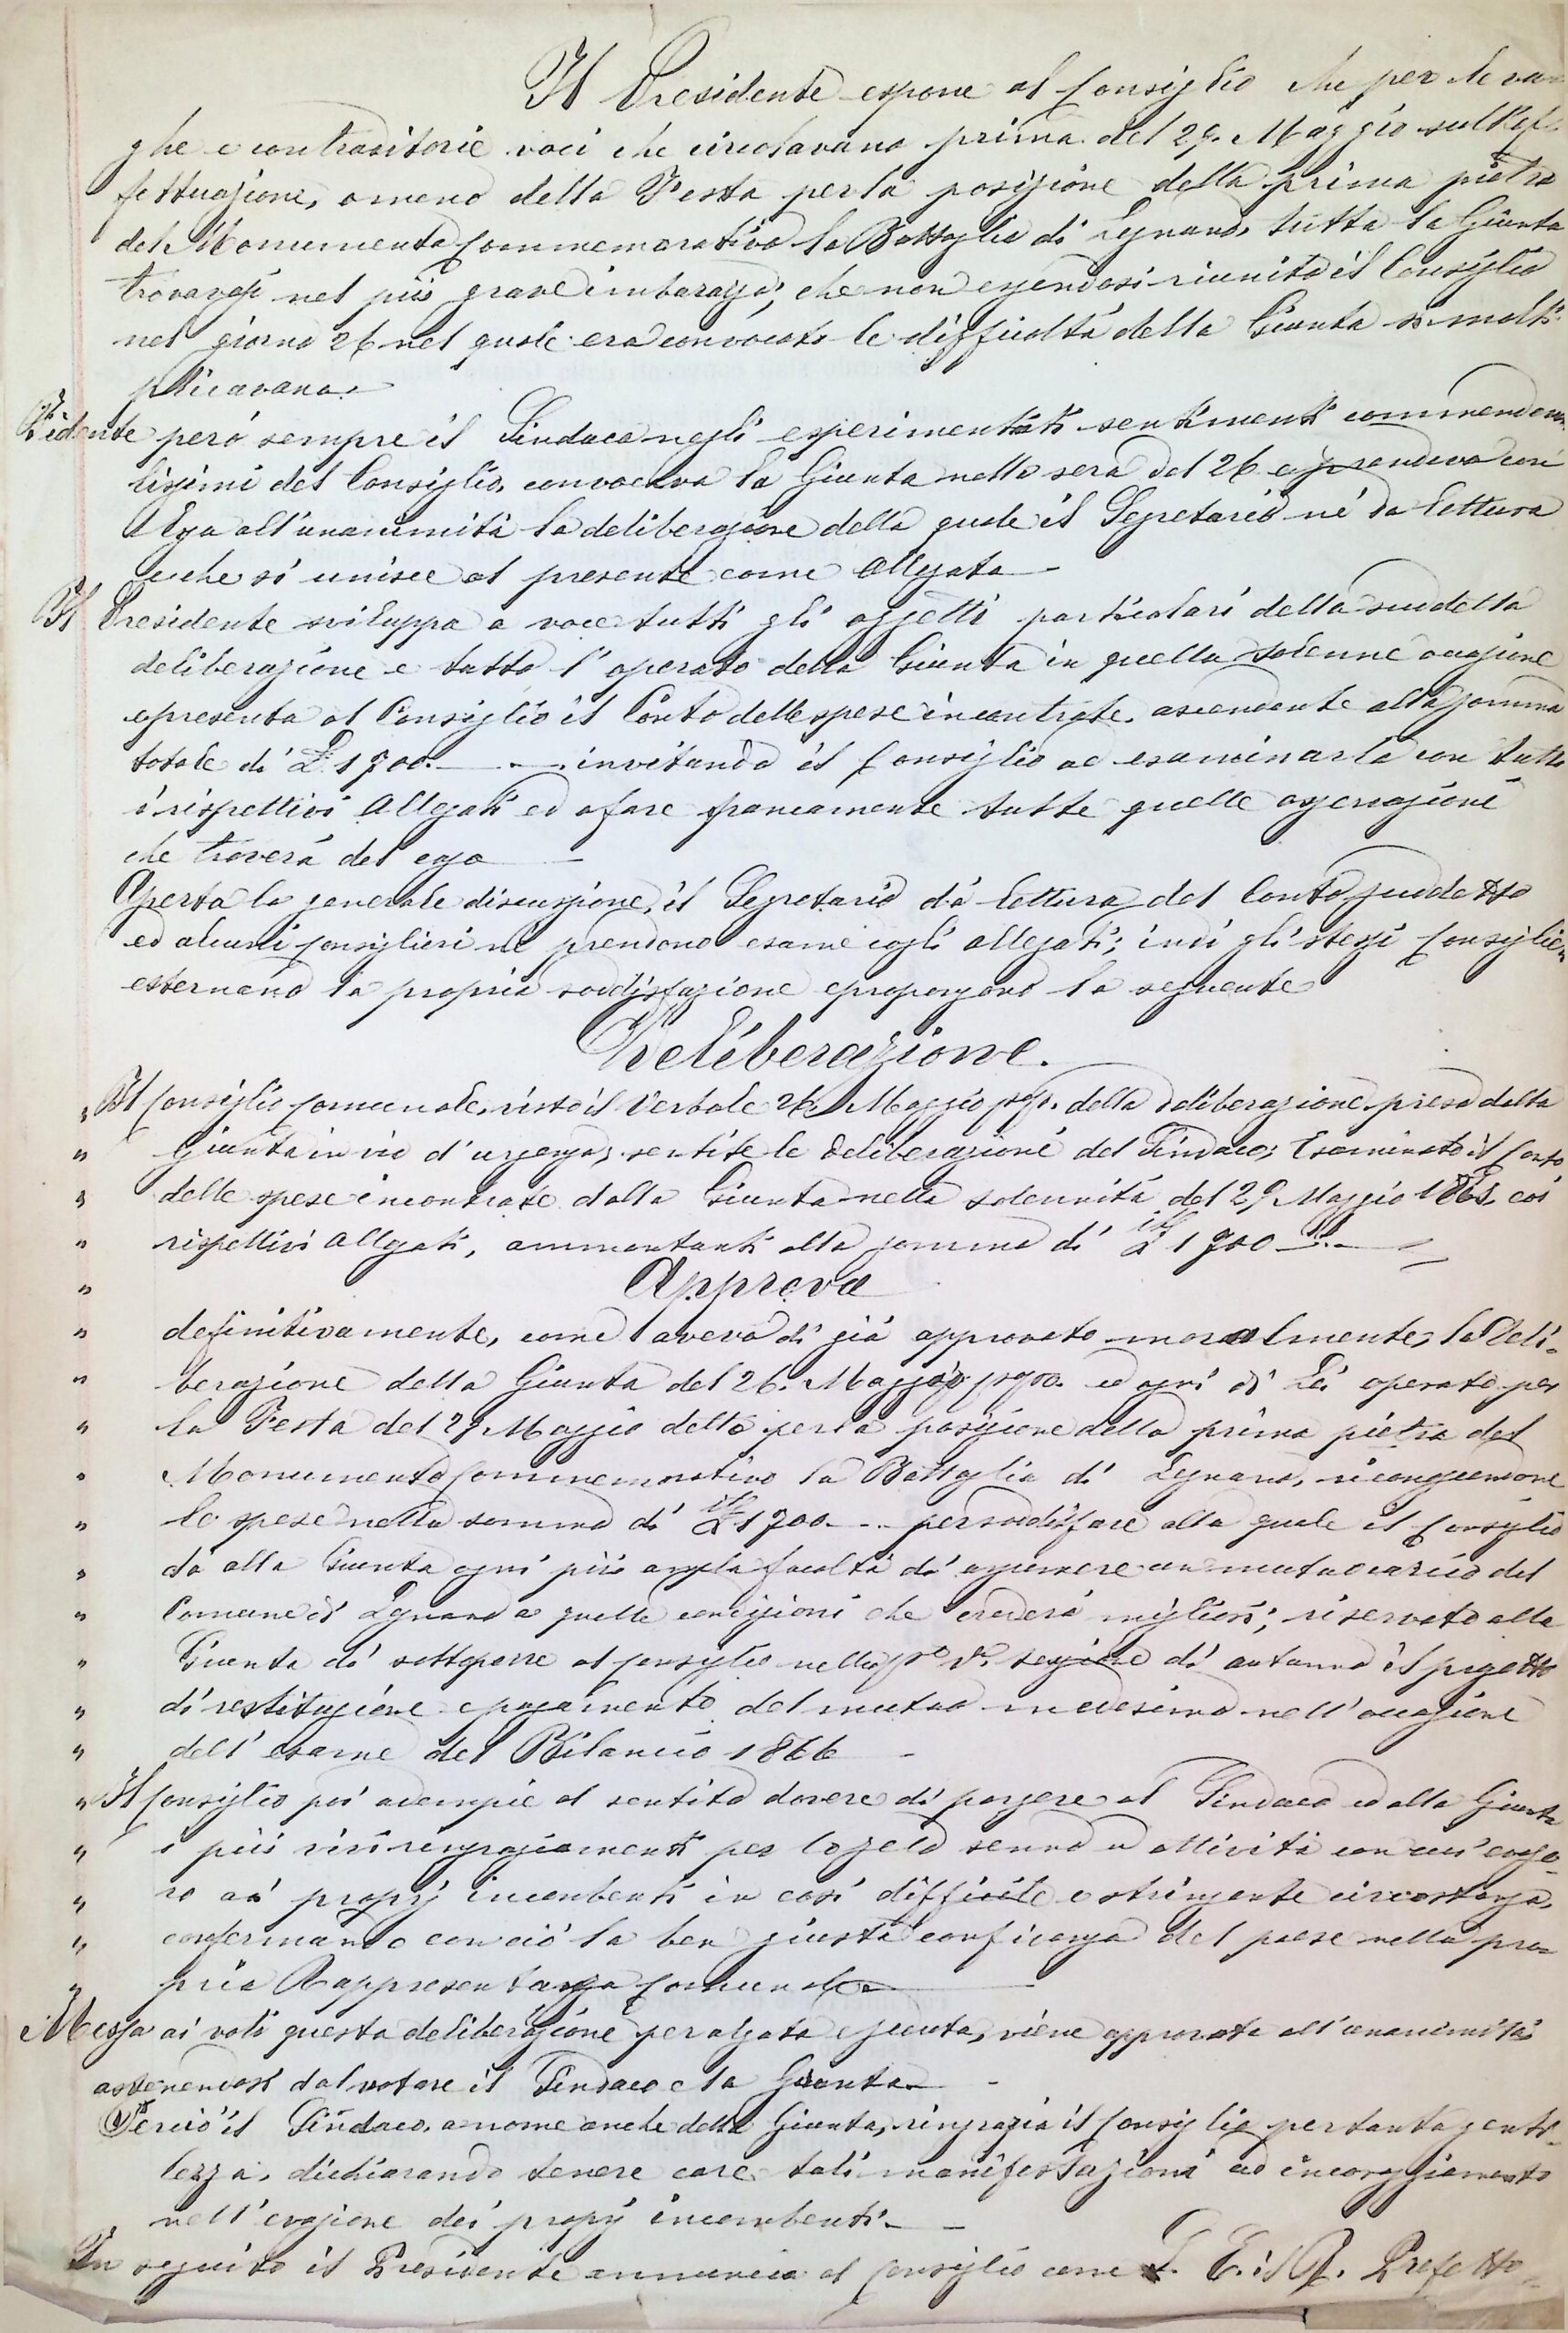 Il Presidente espone al Consiglio che per le va=
ghe e contraditorie voci che circolavano prima del 29. Maggio sull'Ef=
fettuazione, o meno della Festa per la posizione della prima pietra
del Monumento Commemorativo la Battaglia di Legnano, tutta la Giunta
trovavasi nel più grave imbarazzo; che non essendosi riunito il Consiglio
nel giorno 26 nel quale era convocato le difficoltà della Giunta si molti=
plicavano.
Fidente però sempre il Sindaco negli esperimentati sentimenti commendevo=
lissimi del Consiglio, convocava la Giunta nella sera del 26 e prendeva con
Essa all'unanimità la deliberazione della quale il Segretario ne dà lettura
e che si unisce al presente come Allegato
Il Presidente sviluppa a voce tutti gli oggetti particolari della suddetta
deliberazione e tutto l'operato della Giunta in quella solenne occasione
e presenta al Consiglio il Conto delle spese incontrate, ascendente alla somma
totale di £ 1700. invitando il Consiglio ad esaminarlo con tutti
i rispettivi Allegati ed a fare francamente tutte quelle osservazioni
che troverà del caso
Aperta la generale discussione, il Segretario dà lettura del Conto suddetto
ed alcuni Consiglieri ne prendono esame cogli allegati; indi gli stessi Consiglieri
esternano la propria soddisfazione e propongono la seguente
Deliberazione.
" Il Consiglio Comunale, visto il Verbale 26. Maggio pp. della deliberazione presa dalla
" Giunta in via d'urgenza; sentite le deliberazioni del Sindaco; Esaminato il Conto
" delle spese incontrate dalla Giunta nella solennità del 29 Maggio 186 coi
" rispettivi Allegati, ammontanti alla somma di it£ 1700
" Approva
" definitivamente, come aveva di già approvato moralmente, la Deli=
" berazione della Giunta del 26. Maggio ed ogni di Lei operato per
" la Festa del 29 Maggio detto per la posizione della prima pietra del
" Monumento Commemorativo la Battaglia di Legnano, riconoscendone
" le spese nella somma di it£ 1700. per soddisfare alla quale il Consiglio
" dà alla Giunta ogni più ampla facoltà di assumere un mutuo a carico del
" Comune di Legnano a quelle condizioni che crederà migliori; riservato alla
" Giunta di sottoporre al Consiglio nella sessione di autunno il progetto
" di restituzione e pagamento del mutuo medesimo nell'occasione
" dell'esame del Bilancio 1866
" Il Consiglio poi adempie al sentito dovere di porgere al Sindaco ed alla Giunta
" i più vivi ringraziamenti per lo zelo senno ed attività con cui evase=
" ro ai proprj incombenti in così difficile e stringente circostanza,
" confermando con ciò la ben giusta confidenza del paese nella pro=
" pria Rappresentanza Comunale
Messa ai voti questa deliberazione per alzata e seduta, viene approvata all'unanimità
astenendosi dal votare il Sindaco e la Giunta.
Perciò il Sindaco, a nome anche della Giunta, ringrazia il Consiglio per tanta genti=
lezza, dichiarando tenere care tali manifestazioni ad incoraggiamento
nell'evasione dei proprj incombenti.
In seguito il Presidente annuncia al Consiglio come S. E. il R. Prefetto